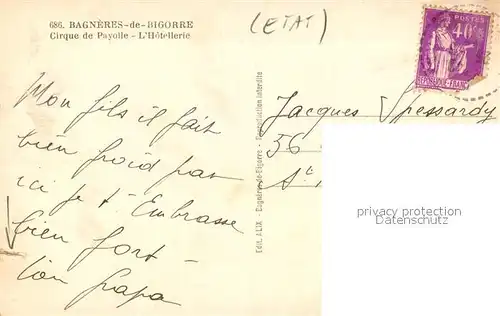 686. BAGNÈRES-de-BIGORRE
Cirque de Payolle - L'Hôtellerie
(ETAT)
POSTES
40c
RÉPUBLIQUE FRANÇ
Mon fils il fait
bien froid par
ici je t'Embrasse
bien fort -
ton papa
Edit. ALIX - Bagnères-de-Bigorre - Reproduction interdite
Jacques Spessardy
56
St
privacy protection
Datenschutz